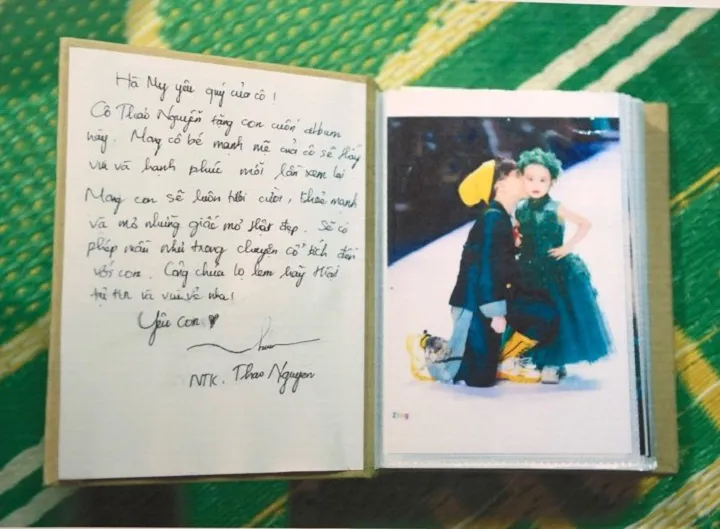 Hà My yêu quý của cô !
Cô Thảo Nguyễn tặng con cuốn album
này. Mong cô bé mạnh mẽ của cô sẽ thấy
vui và hạnh phúc mỗi lần xem lại
Mong con sẽ luôn tươi cười, khoẻ mạnh
và mơ những giấc mơ thật đẹp. Sẽ có
phép màu như trong chuyện cổ tích đến
với con. Công chúa lọ lem hãy thật
tự tin và vui vẻ nha!
Yêu con
NTK. Thao Nguyen